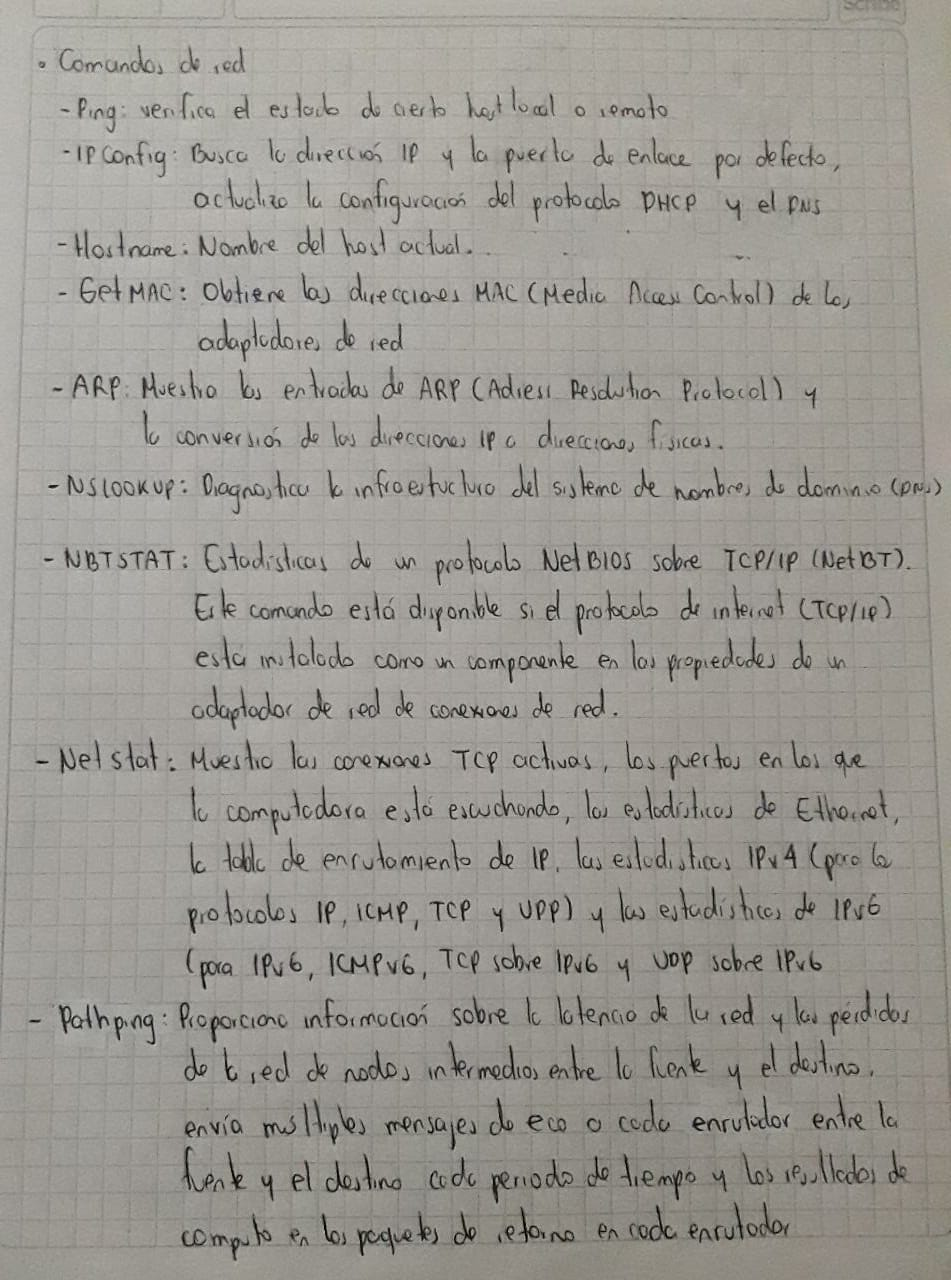 Scribe
• Comandos de red
- Ping: verifica el estado de cierto host local o remoto
- IPConfig: Busca la dirección IP y la puerta de enlace por defecto,
actualiza la configuración del protocolo DHCP y el DNS
- Hostname: Nombre del host actual.
- GetMAC: Obtiene las direcciones MAC (Media Access Control) de los
adaptadores de red
- ARP: Muestra las entradas de ARP (Adress Resolution Protocol) y
la conversión de las direcciones IP a direcciones físicas.
- NSLOOKUP: Diagnostica la infraestuctura del sistema de nombres de dominio (DNS)
- NBTSTAT: Estadísticas de un protocolo NetBIOS sobre TCP/IP (NetBT).
Este comando está disponible si el protocolo de internet (TCP/IP)
está instalado como un componente en las propiedades de un
adaptador de red de conexiones de red.
- Netstat: Muestra las conexiones TCP activas, los puertos en los que
la computadora está escuchando, las estadísticas de Ethernet,
la tabla de enrutamiento de IP, las estadísticas IPv4 (para los
protocolos IP, ICMP, TCP y UDP) y las estadísticas de IPv6
(para IPv6, ICMPv6, TCP sobre IPv6 y UDP sobre IPv6
- Pathping: Proporciona información sobre la latencia de la red y las pérdidas
de la red de nodos intermedios entre la fuente y el destino,
envía múltiples mensajes de eco a cada enrutador entre la
fuente y el destino cada periodo de tiempo y los resultados de
computo en los paquetes de retorno en cada enrutador